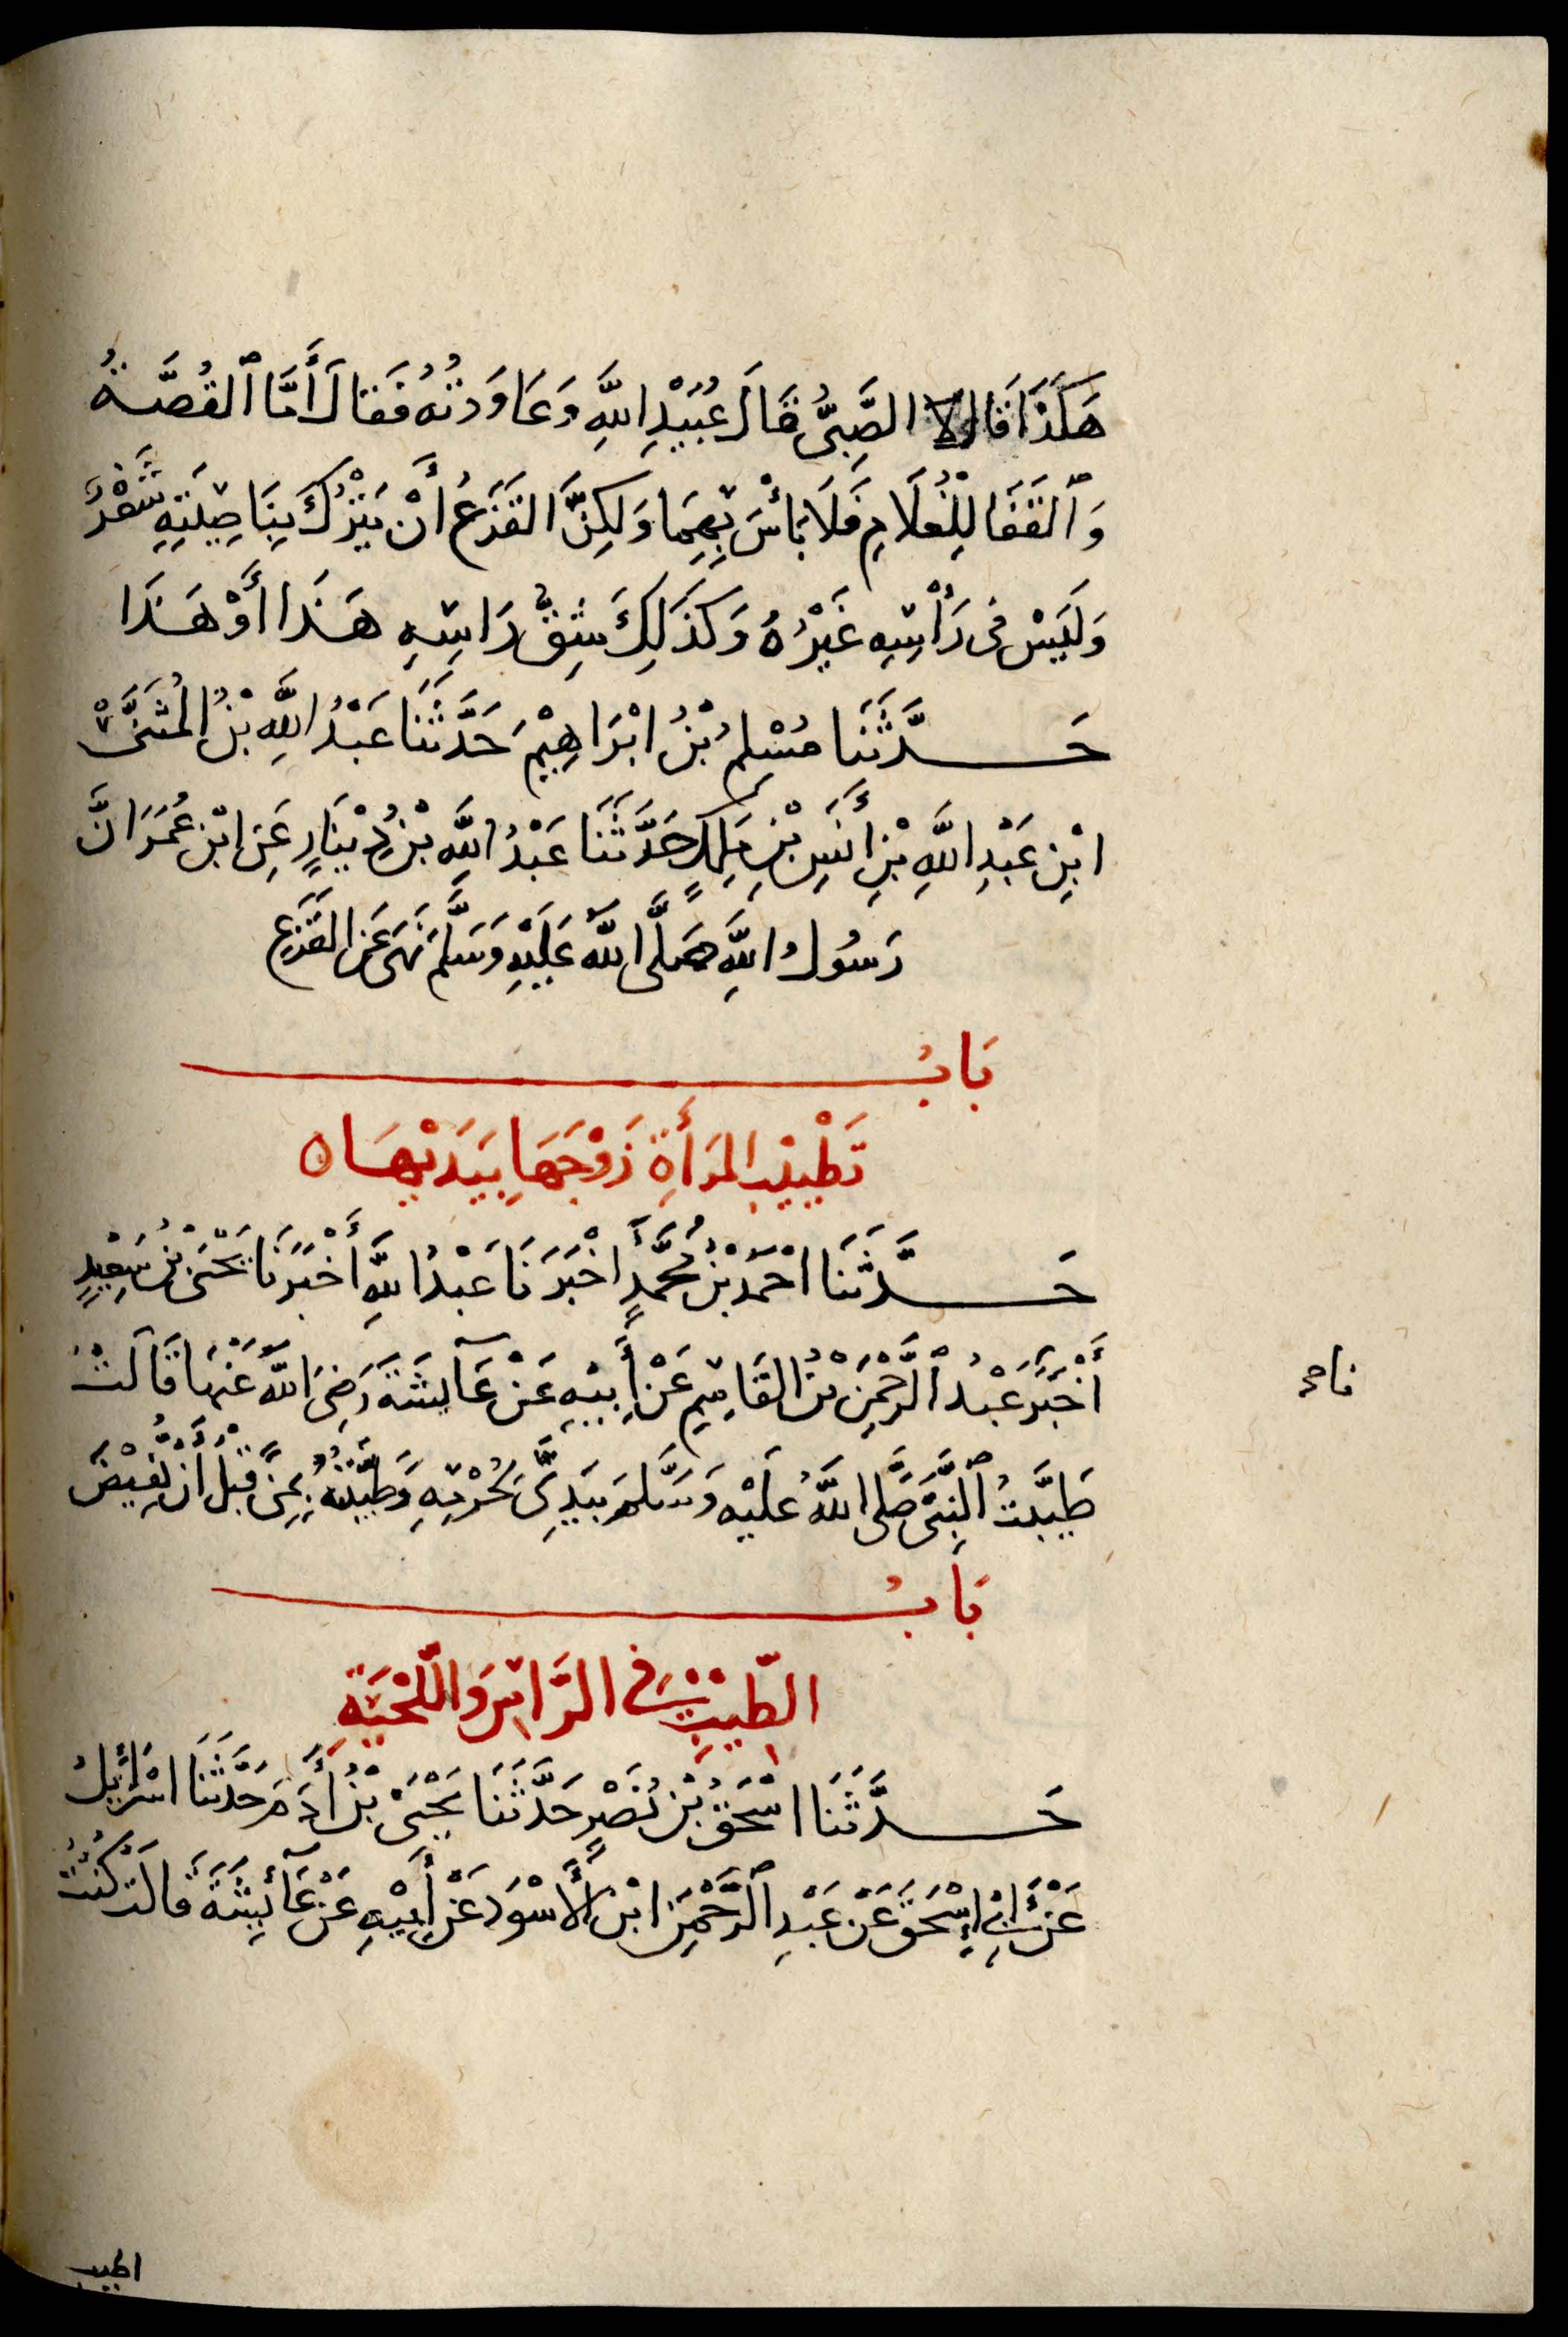 هَكَذَا قَالَ الصَّبِىُّ قَالَ عُبَيْدِ اللهِ وَعَاوَدْتُهُ فَقَالَ أَمَّا ٱلقُصَّةُ
وَٱلقَفَا لِلْغُلَامِ فَلَا بَأْسَ بِهِمَا وَلَكِنَّ القَزَعُ أَنْ يَتْرُكَ بِنَاصِيَتِهِ شَعْرٌ
وَلَيْسَ فِى رَأْسِهِ غَيْرُهُ وَكَذَلِكَ شِقُّ رَاسِهِ هَذَا أَوْ هَذَا
حَدَّثَنَا مُسْلِمُ بْنُ ابْرَاهِيْمَ حَدَّثَنَا عَبْدُ اللهِ بْنُ المُثَنَّىْ
ابْنِ عَبْدِ اللهِ بْنِ أَنَسِ بْنِ مَلِكٍ حَدَّثَنَا عَبْدُ اللهِ بْنُ دِيْنَارٍ عَنِ ابْنِ عُمَرَ انَّ
رَسُولُ اللهِ صَلَّى اللهُ عَلَيْهِ وَسَلَّمَ نَهَى عَنِ القَزَعِ
بَابُ
تَطْيِيْبِ المَرَأَةِ زَوْجَهَا بِيَدَيْهَا ه
حَدَّثَنَا احْمَدُ بْنُ مُحَمَّدٍ اخْبَرَنَا عَبْدُ اللهِ أَخْبَرَنَا يَحْيَى بْنُ سَعِيْدٍ
أَخْبَرَ عَبْدُ ٱلرَّحْمَنِ بْنُ القَاسِمِ عَنْ أَبِيْهِ عَنْ عَآيِشَةَ رَضِىَ اللهُ عَنْهَا قَالَتْ
طَيَّبْتُ ٱلنَّبِىَّ صَلَّى اللهُ عَلَيْهِ وَسَلَّمَ بِيَدِىَّ لِحُرْمِهِ وَطَيَّبْتُهُ بِمِنًى قَبْلَ أَنْ يُفِيْضَ
بَابُ
الطِّيْبِ فِى الرَّاسِ وَاللِّحْيَةِ
حَدَّثَنَا اسْحَقُ بْنُ نَصْرٍ حَدَّثَنَا يَحْيَىْ بْنُ أَدَمَ حَدَّثَنَا اسْرَائِيلُ
عَنْ أَبِى إِسْحَقَ عَنْ عَبْدِ ٱلرَّحْمَنِ ابْنِ الأَسْوَدِ عَنْ أَبِيْهِ عَنْ عَآئِشَةَ قَالَتْ كُنْتُ